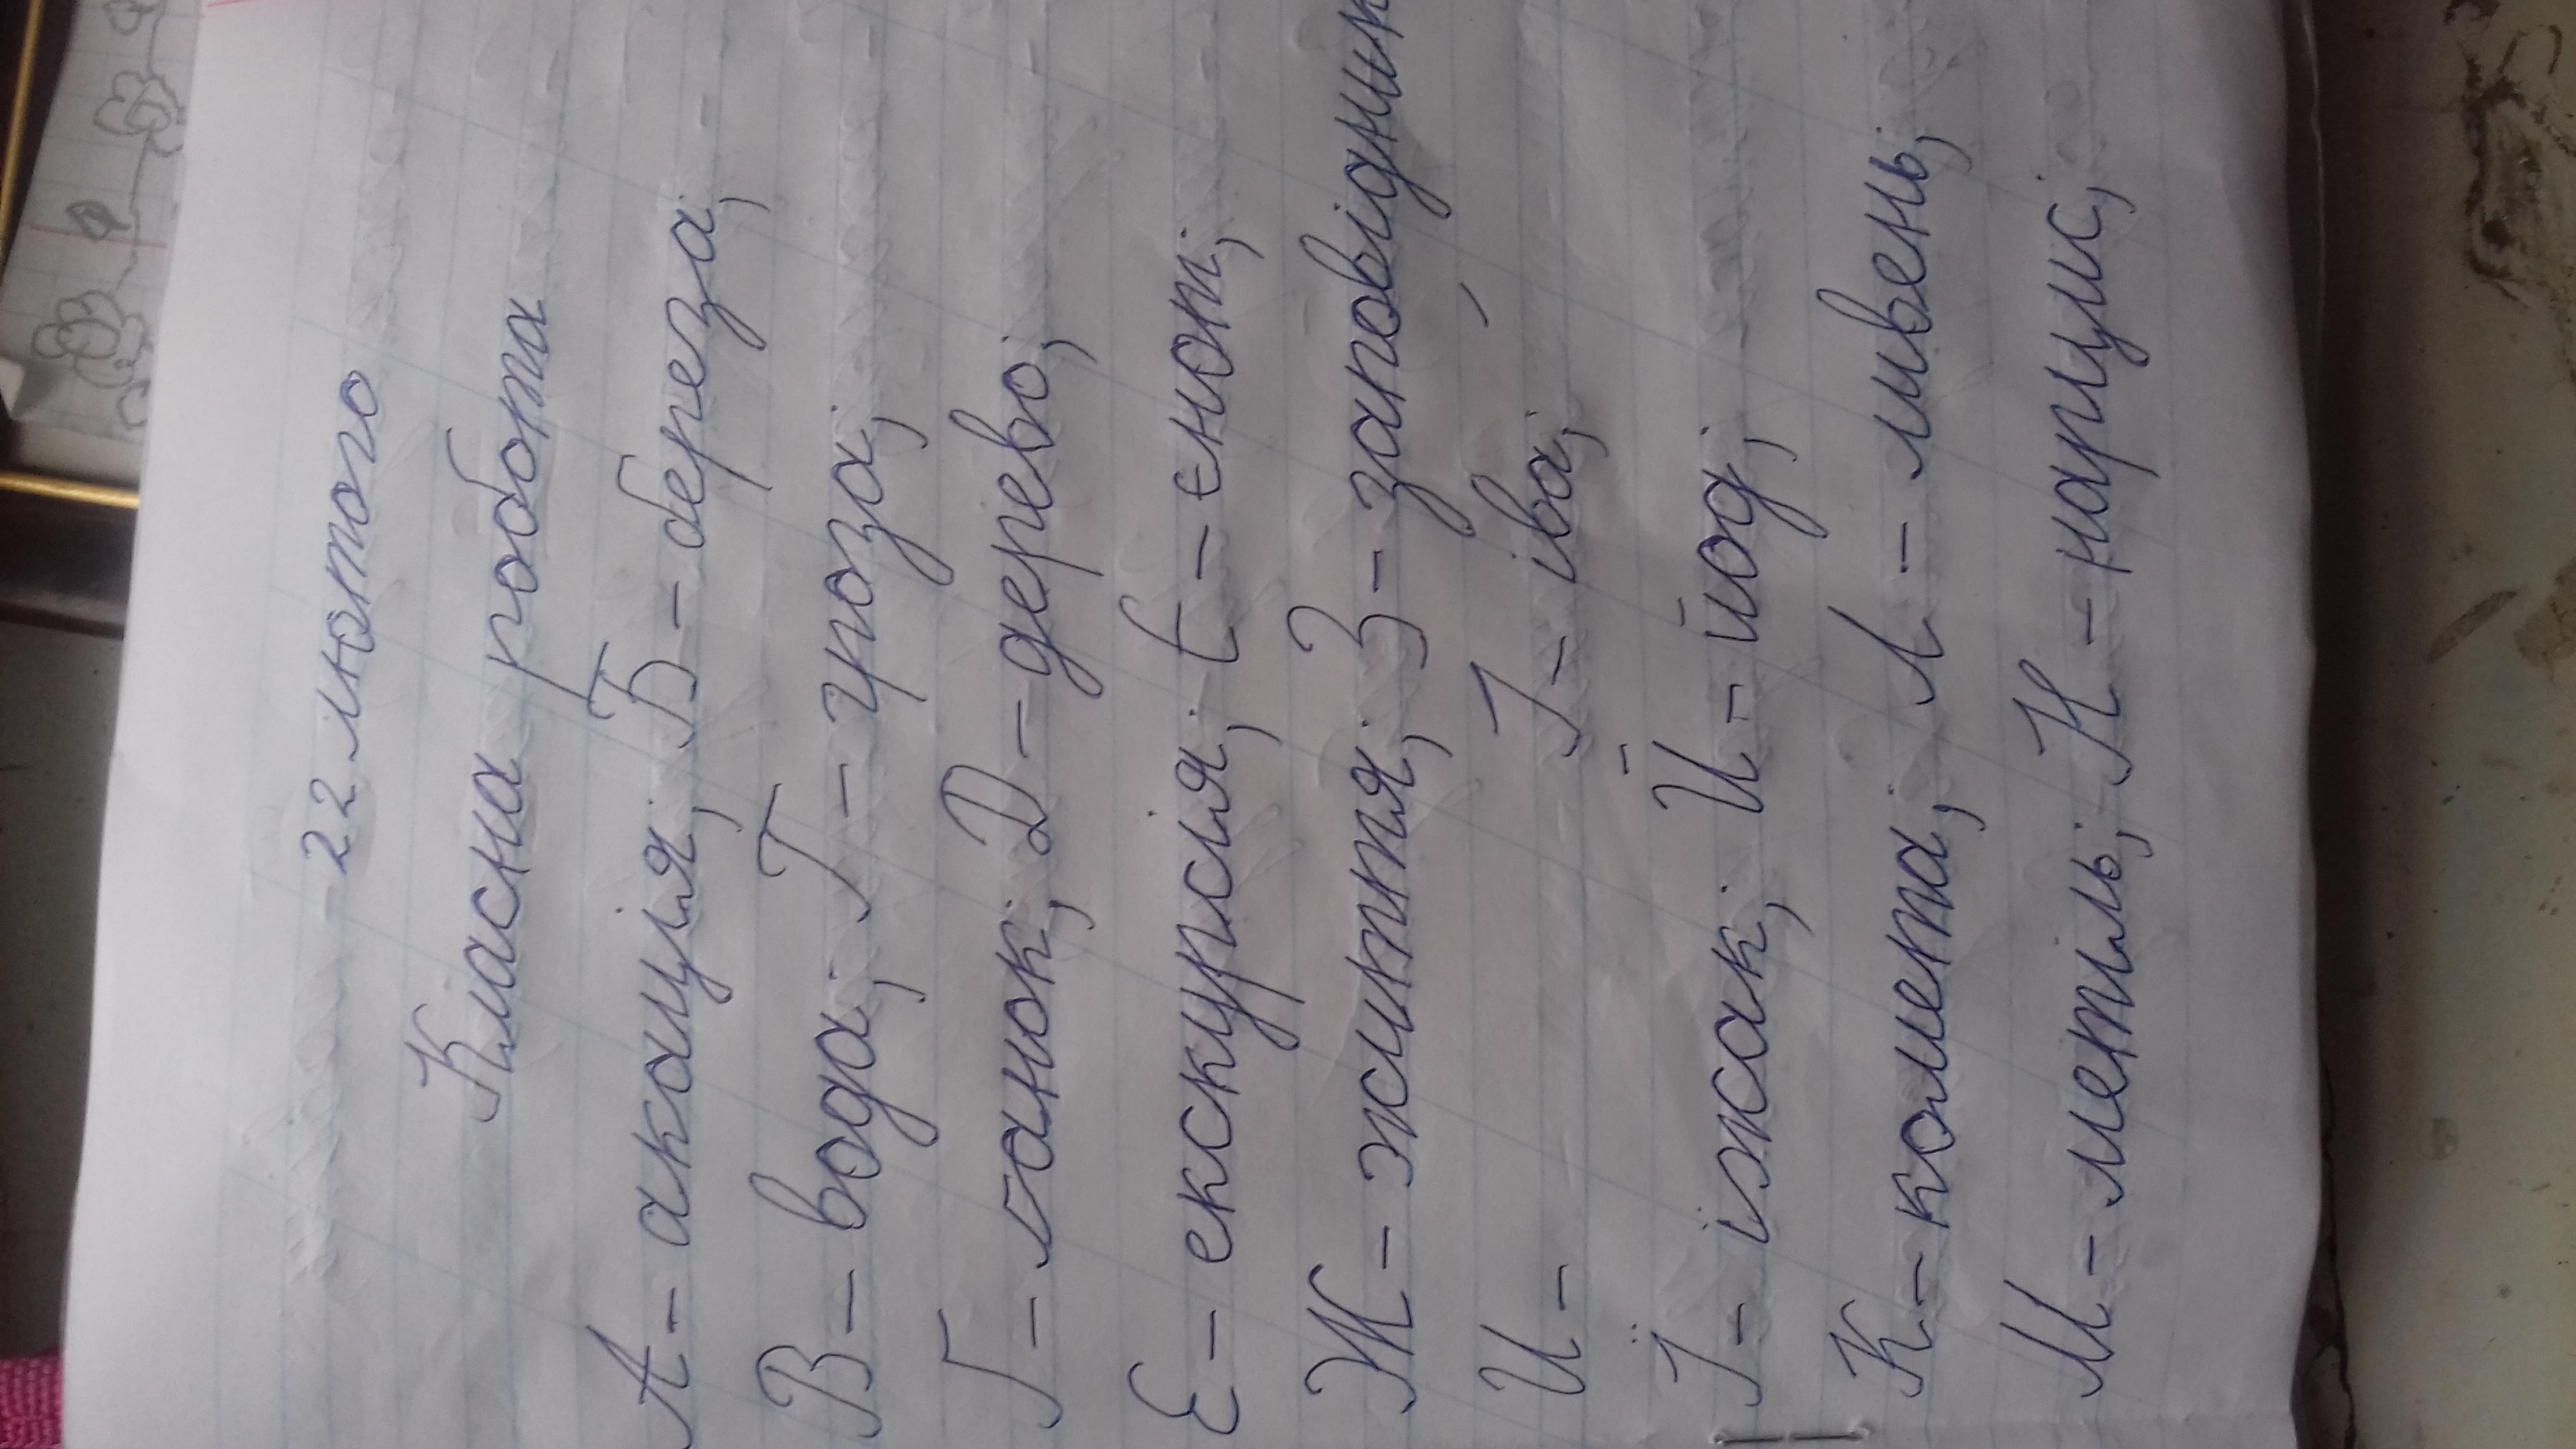 22 лютого
Класна робота
А - акація; Б - береза;
В - вода; Г - гроза;
Ґ - ґанок; Д - дерево;
Е - екскурсія; Є - єнот;
Ж - життя; З - заповідник;
И - І - іва;
Ї - їжак; Й - йод;
К - комета; Л - ливень;
М - метіль; Н - нарцис;